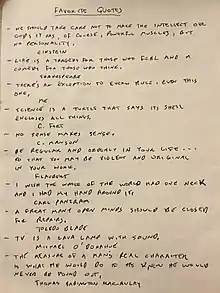 FAVORITE QUOTES
- WE SHOULD TAKE CARE NOT TO MAKE THE INTELLECT OUR
GOD; IT HAS, OF COURSE, POWERFUL MUSCLES, BUT
NO PERSONALITY.
EINSTEIN
- LIFE IS A TRAGEDY FOR THOSE WHO FEEL AND A
COMEDY FOR THOSE WHO THINK.
SHAKESPEARE
- THERE'S AN EXCEPTION TO EVERY RULE. EVEN THIS
ONE.
ME
- SCIENCE IS A TURTLE THAT SAYS ITS SHELL
ENCLOSES ALL THINGS.
C. FORT
- NO SENSE MAKES SENSE.
C. MANSON
- BE REGULAR AND ORDERLY IN YOUR LIFE...
SO THAT YOU MAY BE VIOLENT AND ORIGINAL
IN YOUR WORK.
FLAUBERT
- I WISH THE WHOLE OF THE WORLD HAD ONE NECK
AND I HAD MY HAND AROUND IT.
CARL PANZRAM
- A GREAT MANY OPEN MINDS SHOULD BE CLOSED
FOR REPAIRS.
TOLEDO BLADE
- TV IS A LAVA LAMP WITH SOUND.
MICHAEL O'DONAHUE
- THE MEASURE OF A MANS REAL CHARACTER
IS WHAT HE WOULD DO IF HE KNEW HE WOULD
NEVER BE FOUND OUT.
THOMAS BABINGTON MACAULAY